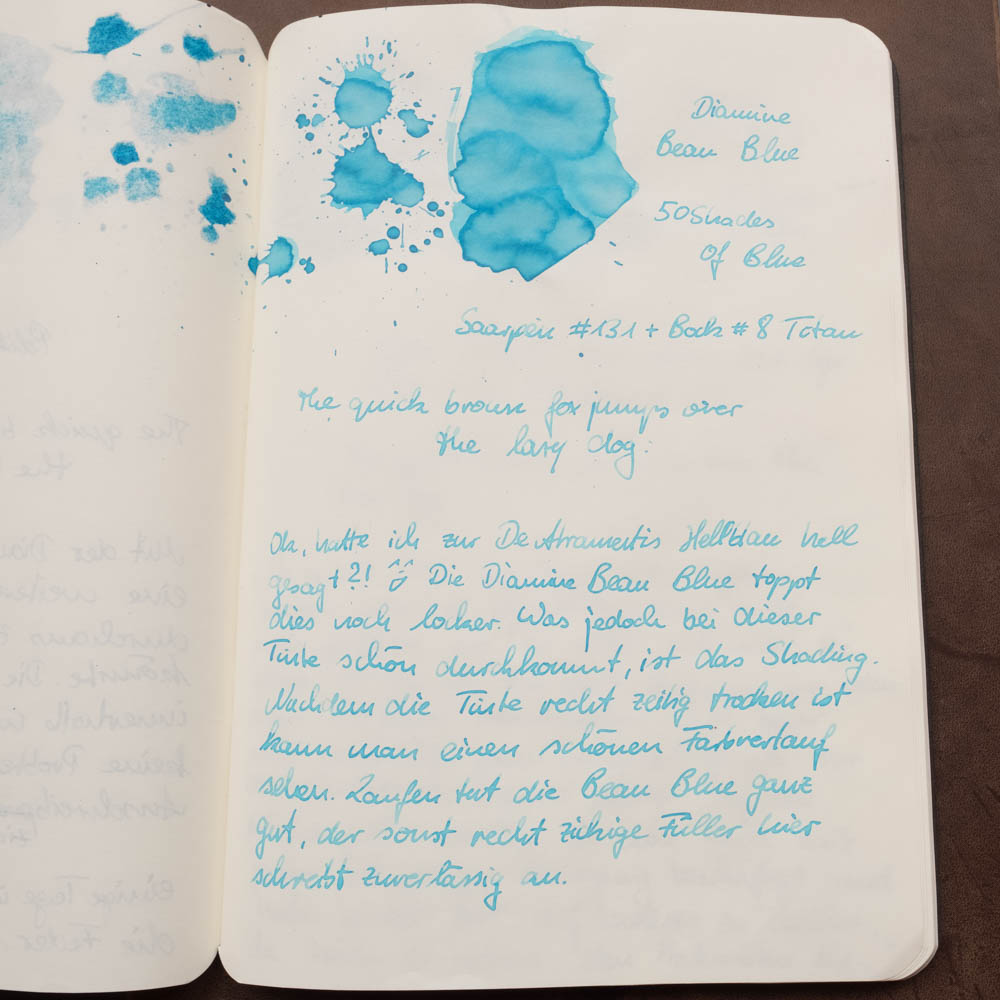 Diamine
Beau Blue
50 Shades
Of Blue
Saarpen #131 + Bock #8 Titan
The quick brown fox jumps over
the lazy dog.
Ok, hatte ich zur De Atramentis Hellblau hell
gesagt?! Die Diamine Beau Blue toppt
dies noch locker. Was jedoch bei dieser
Tinte schön durchkommt, ist das Shading.
Nachdem die Tinte recht zeitig trocken ist
kann man einen schönen Farbverlauf
sehen. Laufen tut die Beau Blue ganz
gut, der sonst recht zickige Füller hier
schreibt zuverlässig an.